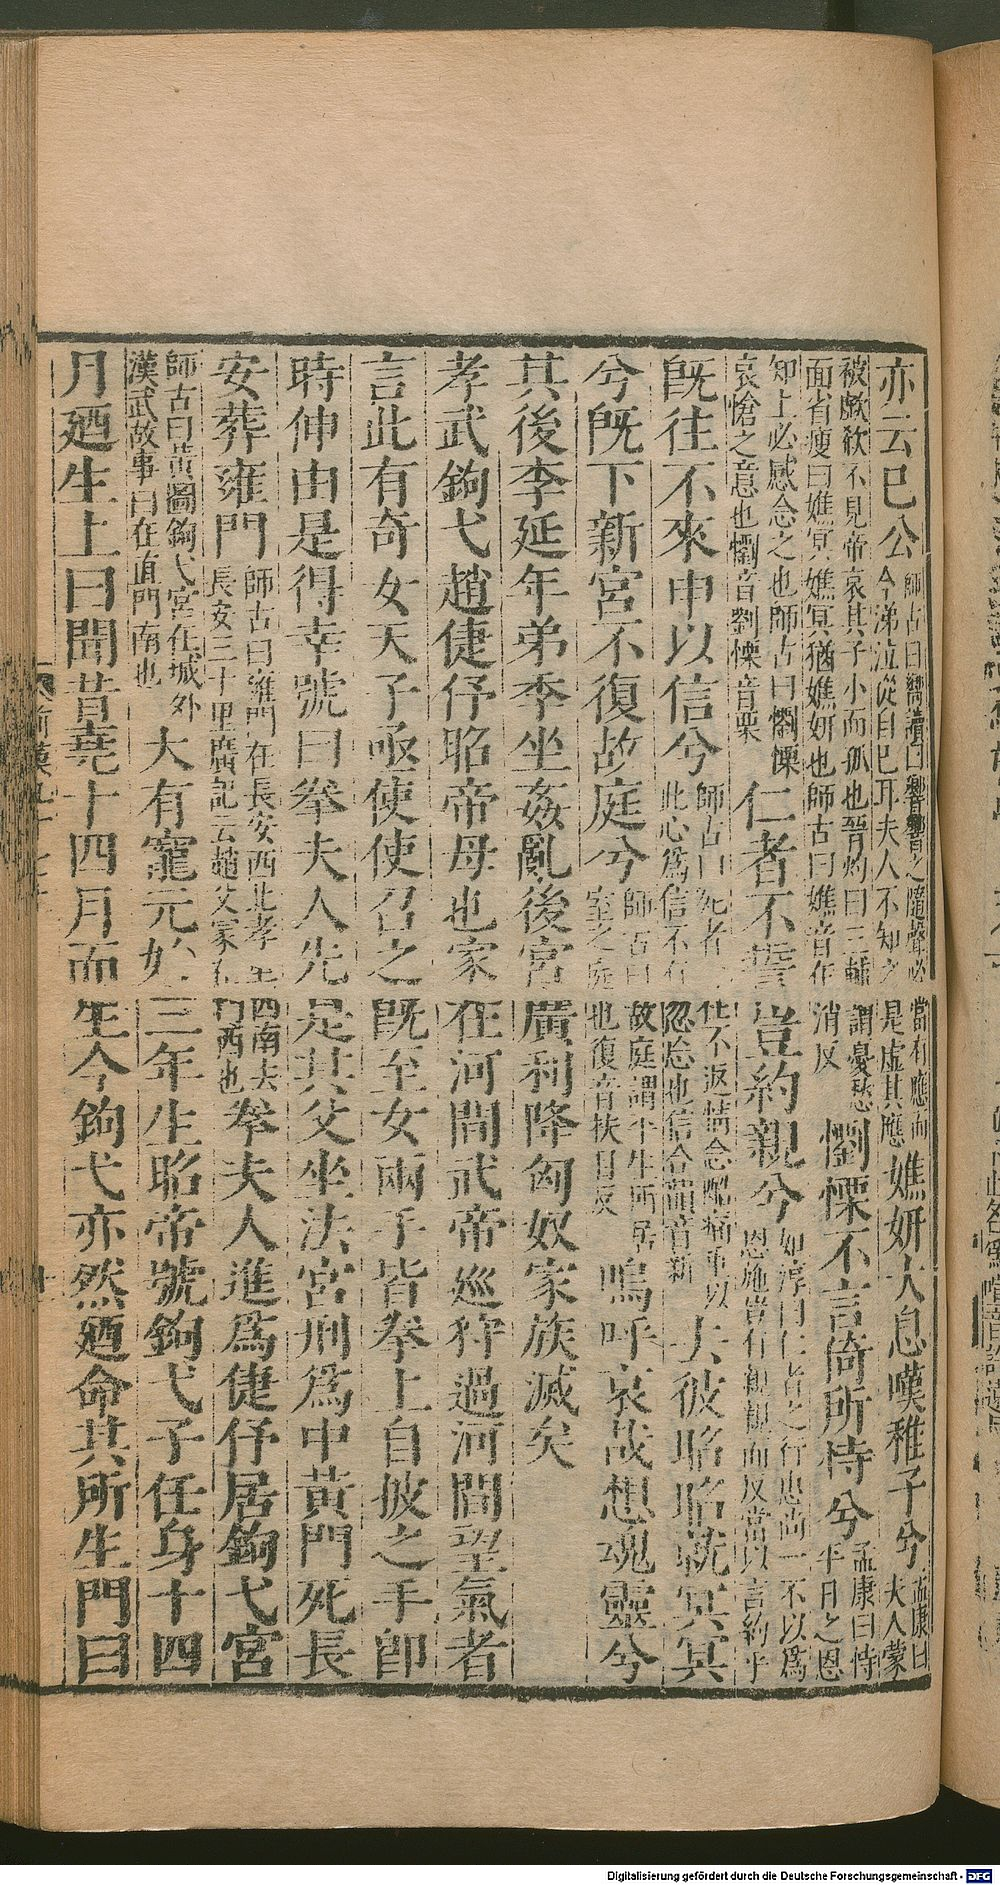 亦云巳公師古曰嚮讀曰響響之隨聲必當有應而今涕泣從自巳耳夫人不知之是虛其應嫶妍太息嘆稚子兮孟康曰夫人蒙
被歔欷不見帝哀其子小而孤也晉灼曰三輔謂憂愁面省瘦曰嫶冥嫶冥猶嫶妍也師古曰嫶音在消反懰慄不言倚所恃兮孟康曰恃平日之恩
知上必感念之也師古曰懰慄哀愴之意也懰音劉慄音栗仁者不誓豈約親兮如淳曰仁者之行惠尚一不以爲恩施豈有親親而反當以言約乎
既往不來申以信兮師古曰死者一往不返情念酷痛重以此心爲信不有忽怠也信合韻音新去彼昭昭就冥冥
兮既下新宮不復故庭兮師古曰故庭謂平生所居室之庭也復音扶目反嗚呼哀哉想魂靈兮
其後李延年弟季坐姦亂後宮廣利降匈奴家族滅矣
孝武鉤弋趙倢伃昭帝母也家在河間武帝巡狩過河間望氣者
言此有奇女天子亟使使召之既至女兩手皆拳上自披之手即
時伸由是得幸號曰拳夫人先是其父坐法宮刑爲中黃門死長
安葬雍門師古曰雍門在長安西北孝里西南去長安三十里廣記云趙父冢在門西也拳夫人進爲倢伃居鉤弋宮
師古曰黃圖鉤弋宮在城外漢武故事曰在直門南也大有寵元始三年生昭帝號鉤弋子任身十四
月廼生上曰聞昔堯十四月而生今鉤弋亦然廼命其所生門曰
Digitalisierung gefördert durch die Deutsche Forschungsgemeinschaft - DFG